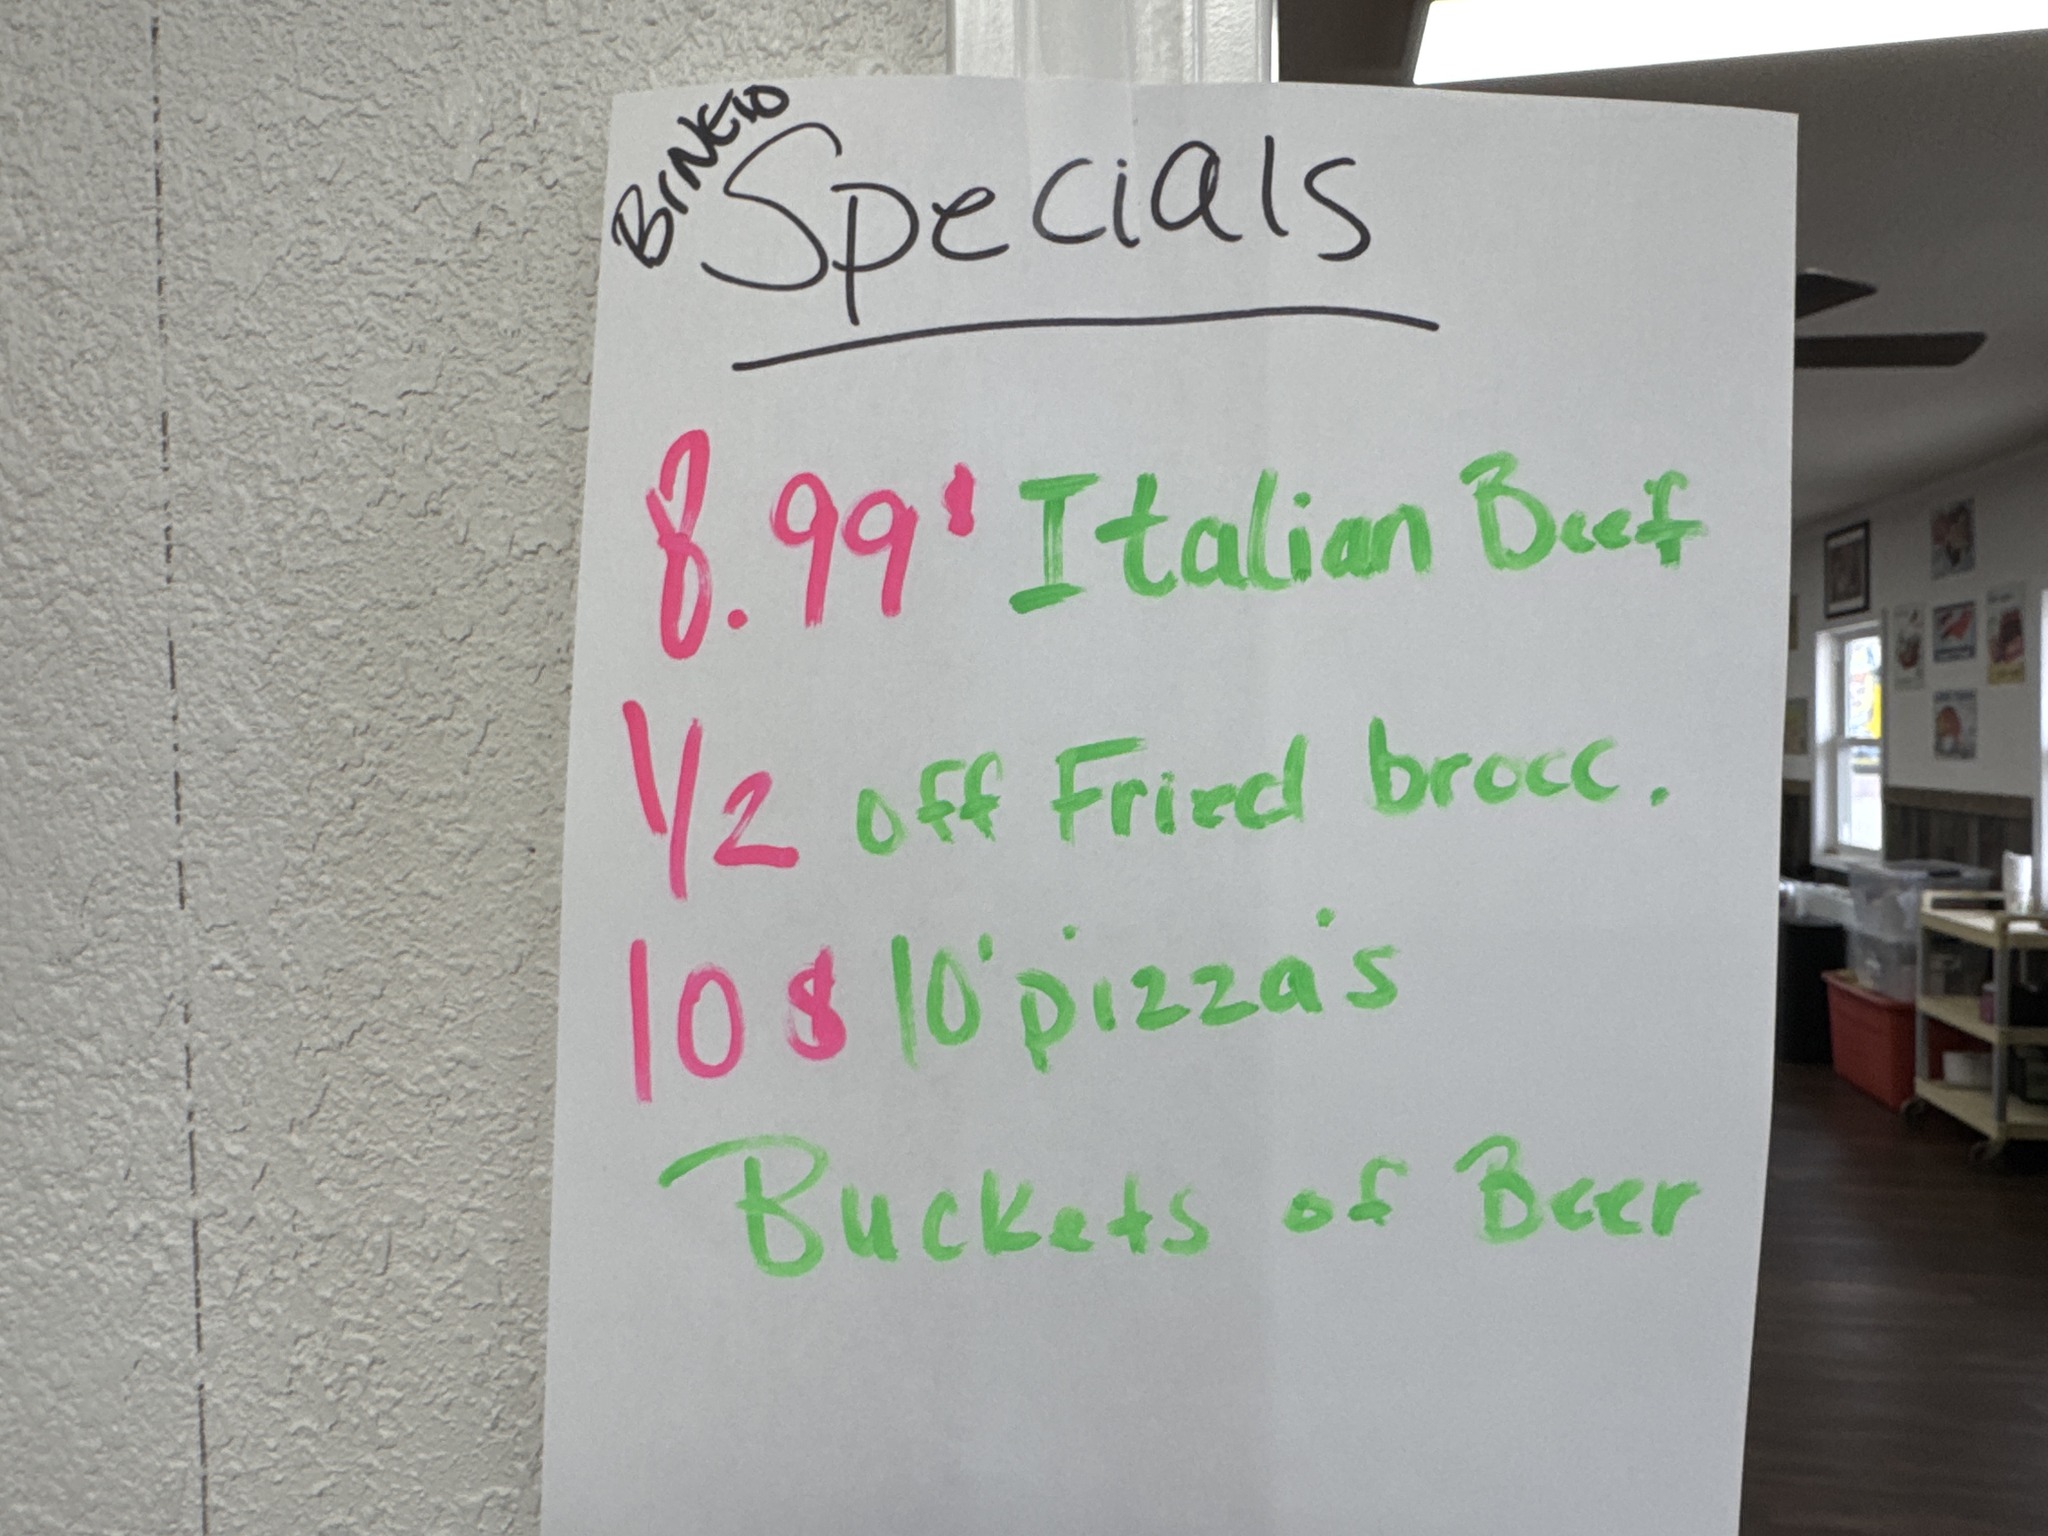 Specials
8.99$ Italian Beef
1/2 off Fried brocc.
10$ 10" pizza's
Buckets of Beer